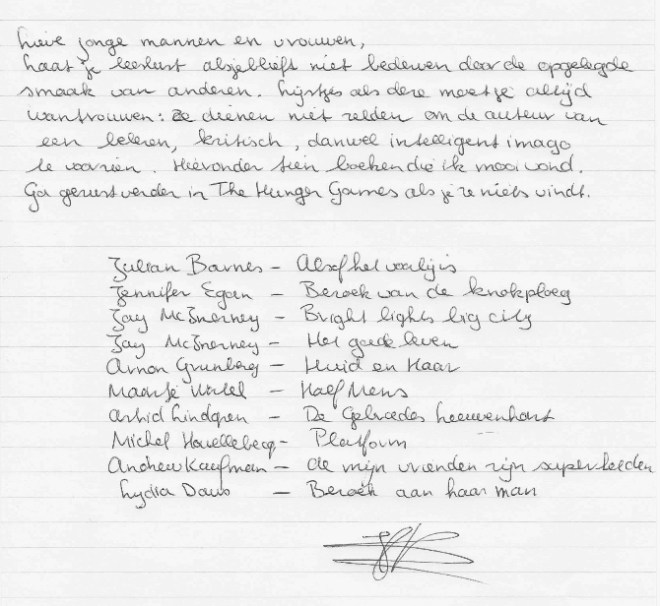 Lieve jonge mannen en vrouwen,
Laat je leeslust alsjeblieft niet bederven door de opgelegde
smaak van anderen. Lijstjes als deze moet je altijd
wantrouwen: ze dienen niet zelden om de auteur van
een belezen, kritisch, danwel intelligent imago
te voorzien. Hieronder tien boeken die ik mooi vond.
Ga gerust verder in The Hunger Games als je ze niets vindt.
Julian Barnes - Alsof het voorbij is
Jennifer Egan - Bezoek van de knokploeg
Jay McInerney - Bright lights big city
Jay McInerney - Het goede leven
Arnon Grunberg - Huid en Haar
Maartje Wortel - Half Mens
Astrid Lindgren - De Gebroeders Leeuwenhart
Michel Houellebecq - Platform
Andrew Kaufman - al mijn vrienden zijn superhelden
Lydia Davis - Bezoek aan haar man